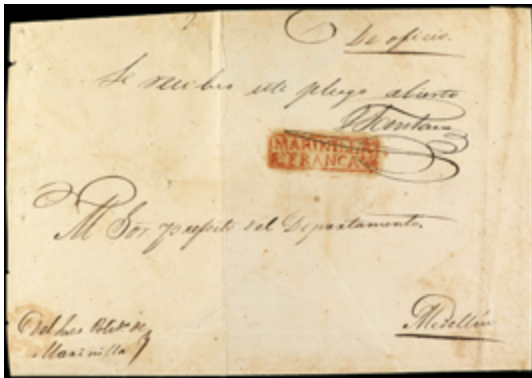 De oficio.
Se recibio este pliego abierto
MARINILLA
FRANCA
Al Sor. Prefecto del Departamento.
Medellín
Marinilla